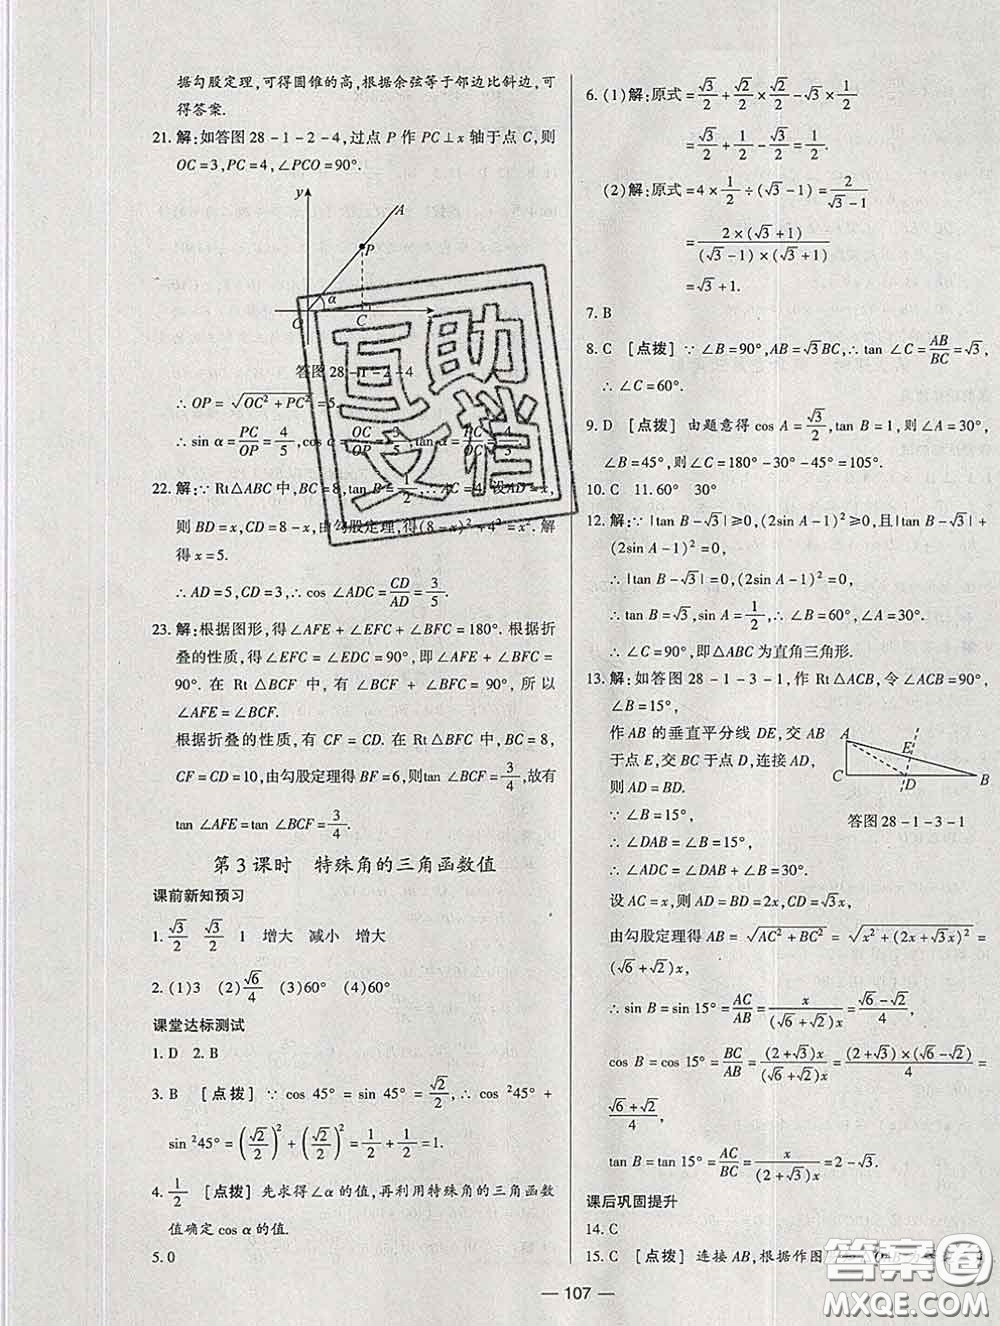 据勾股定理,可得圆锥的高,根据余弦等于邻边比斜边,可
得答案.
21. 解:如答图28-1-2-4,过点P作PC⊥x轴于点C,则
OC=3,PC=4,∠PCO=90°.
y
A
P
α
O
C
x
答图28-1-2-4
∴OP=√(OC²+PC²)=5.
∴sin α=PC/OP=4/5,cos α=OC/OP=3/5,tan α=PC/OC=4/3.
22. 解:∵Rt△ABC中,BC=8,tan B=1/2,∴AC=4.设AD=x,
则BD=x,CD=8-x,由勾股定理,得(8-x)²+4²=x².解
得x=5.
∴AD=5,CD=3,∴cos∠ADC=CD/AD=3/5.
23. 解:根据图形,得∠AFE+∠EFC+∠BFC=180°.根据折
叠的性质,得∠EFC=∠EDC=90°,即∠AFE+∠BFC=
90°.在Rt△BCF中,有∠BCF+∠BFC=90°,所以
∠AFE=∠BCF.
根据折叠的性质,有CF=CD.在Rt△BFC中,BC=8,
CF=CD=10,由勾股定理得BF=6,则tan∠BCF=3/4,故有
tan∠AFE=tan∠BCF=3/4.
第3课时 特殊角的三角函数值
课前新知预习
1. √3/2 √3/2 1 增大 减小 增大
2. (1)3 (2)√6/4 (3)60° (4)60°
课堂达标测试
1. D 2. B
3. B [点拨] ∵cos 45°=sin 45°=√2/2,∴cos ²45°+
sin ²45°=(√2/2)²+(√2/2)²=1/2+1/2=1.
4. 1/2 [点拨] 先求得∠α的值,再利用特殊角的三角函数
值确定cos α的值.
5. 0
6. (1)解:原式=√3/2+√2/2×√2/2-√3×1/2
=√3/2+1/2-√3/2
=1/2.
(2)解:原式=4×1/2÷(√3-1)=2/(√3-1)
=2×(√3+1)/((√3-1)×(√3+1))
=√3+1.
7. B
8. C [点拨] ∵∠B=90°,AB=√3BC,∴tan∠C=AB/BC=√3,
∴∠C=60°.
9. D [点拨] 由题意得cos A=√3/2,tan B=1,则∠A=30°,
∠B=45°,则∠C=180°-30°-45°=105°.
10. C 11. 60° 30°
12. 解:∵|tan B-√3|≥0,(2sin A-1)²≥0,且|tan B-√3|+
(2sin A-1)²=0,
∴|tan B-√3|=0,(2sin A-1)²=0,
∴tan B=√3,sin A=1/2,∴∠B=60°,∠A=30°.
∴∠C=90°,即△ABC为直角三角形.
13. 解:如答图28-1-3-1,作Rt△ACB,令∠ACB=90°,
∠B=15°,
作AB的垂直平分线DE,交AB
于点E,交BC于点D,连接AD,
则AD=BD.
∵∠B=15°,
∴∠DAB=∠B=15°,
∴∠ADC=∠DAB+∠B=30°.
A
E
C
D
B
答图28-1-3-1
设AC=x,则AD=BD=2x,CD=√3x,
由勾股定理得AB=√(AC²+BC²)=√(x²+(2x+√3x)²)=
(√6+√2)x,
∴sin B=sin 15°=AC/AB=x/((√6+√2)x)=(√6-√2)/4,
cos B=cos 15°=BC/AB=(2+√3)x/((√6+√2)x)=(2+√3)×(√6-√2)/4=
(√6+√2)/4,
tan B=tan 15°=AC/BC=x/((2+√3)x)=2-√3.
课后巩固提升
14. C
15. C [点拨] 连接AB,根据作图
— 107 —
互助
文档
答案圈
MXQE.COM